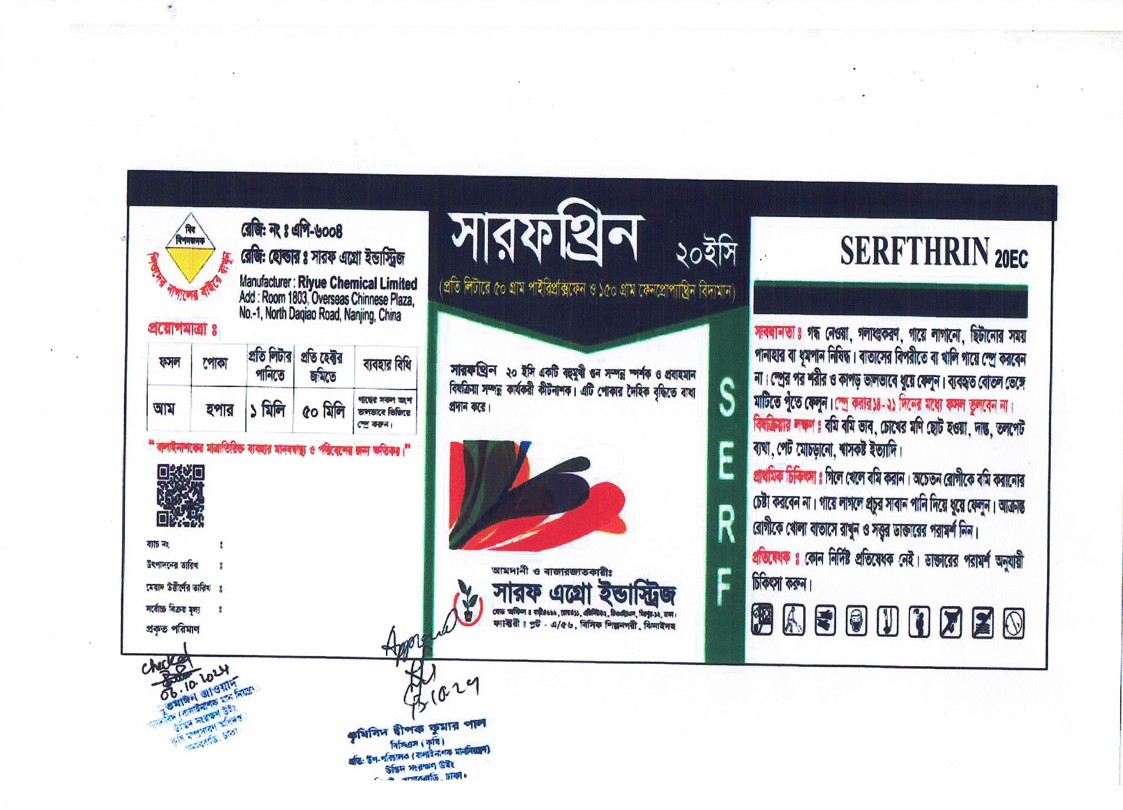 বিষ
বিপদজনক
শিশুদের নাগালের বাইরে রাখুন
রেজি: নং ঃ এপি-৬০০৪
রেজি: হোল্ডার ঃ সারফ এগ্রো ইন্ডাস্ট্রিজ
Manufacturer : Rlyue Chemical Limited
Add : Room 1803, Overseas Chinnese Plaza,
No.-1, North Daqiao Road, Nanjing, China
প্রয়োগমাত্রা ঃ
ফসল পোকা প্রতি লিটার পানিতে প্রতি হেক্টর জমিতে ব্যবহার বিধি
আম হপার ১ মিলি ৫০ মিলি গাছের সকল অংশ ভালভাবে ভিজিয়ে স্প্রে করুন।
"বালাইনাশকের মাত্রাতিরিক্ত ব্যবহার মানবস্বাস্থ্য ও পরিবেশের জন্য ক্ষতিকর।"
ব্যাচ নং :
উৎপাদনের তারিখ :
মেয়াদ উত্তীর্ণের তারিখ :
সর্বোচ্চ বিক্রয় মূল্য :
প্রকৃত পরিমান
সারফথ্রিন ২০ইসি
(প্রতি লিটারে ৫০ গ্রাম পাইরিপ্রক্সিফেন ও ১৫০ গ্রাম ফেনপ্রোপ্যাথ্রিন বিদ্যমান)
সারফথ্রিন ২০ ইসি একটি বহুমুখী গুন সম্পন্ন স্পর্শক ও প্রবাহমান
বিষক্রিয়া সম্পন্ন কার্যকরী কীটনাশক। এটি পোকার দৈহিক বৃদ্ধিতে বাধা
প্রদান করে।
আমদানী ও বাজারজাতকারীঃ
সারফ এগ্রো ইন্ডাস্ট্রিজ
ফ্যাক্টরী : প্লট - এ/৫৬, বিসিক শিল্পনগরী, ঝিনাইদহ
SERF
SERFTHRIN 20EC
সাবধানতা ঃ গন্ধ নেওয়া, গলাধঃকরণ, গায়ে লাগানো, ছিটানোর সময়
পানাহার বা ধূমপান নিষিদ্ধ। বাতাসের বিপরীতে বা খালি গায়ে স্প্রে করবেন
না। স্প্রের পর শরীর ও কাপড় ভালভাবে ধুয়ে ফেলুন। ব্যবহৃত বোতল ভেঙ্গে
মাটিতে পুঁতে ফেলুন। স্প্রে করার ১৪-২১ দিনের মধ্যে ফসল তুলবেন না।
বিষক্রিয়ার লক্ষণ ঃ বমি বমি ভাব, চোখের মণি ছোট হওয়া, দাস্ত, তলপেট
ব্যথা, পেট মোচড়ানো, শ্বাসকষ্ট ইত্যাদি।
প্রাথমিক চিকিৎসা ঃ গিলে খেলে বমি করান। অচেতন রোগীকে বমি করানোর
চেষ্টা করবেন না। গায়ে লাগলে প্রচুর সাবান পানি দিয়ে ধুয়ে ফেলুন। আক্রান্ত
রোগীকে খোলা বাতাসে রাখুন ও সত্ত্বর ডাক্তারের পরামর্শ নিন।
প্রতিষেধক ঃ কোন নির্দিষ্ট প্রতিষেধক নেই। ডাক্তারের পরামর্শ অনুযায়ী
চিকিৎসা করুন।
Checked
06.10.2024
Approved
কৃষিবিদ দ্বীপক কুমার পাল
বিসিএস (কৃষি)
প্রতি: উপ-পরিচালক (বালাইনাশক মাননিয়ন্ত্রণ)
উদ্ভিদ সংরক্ষণ উইং